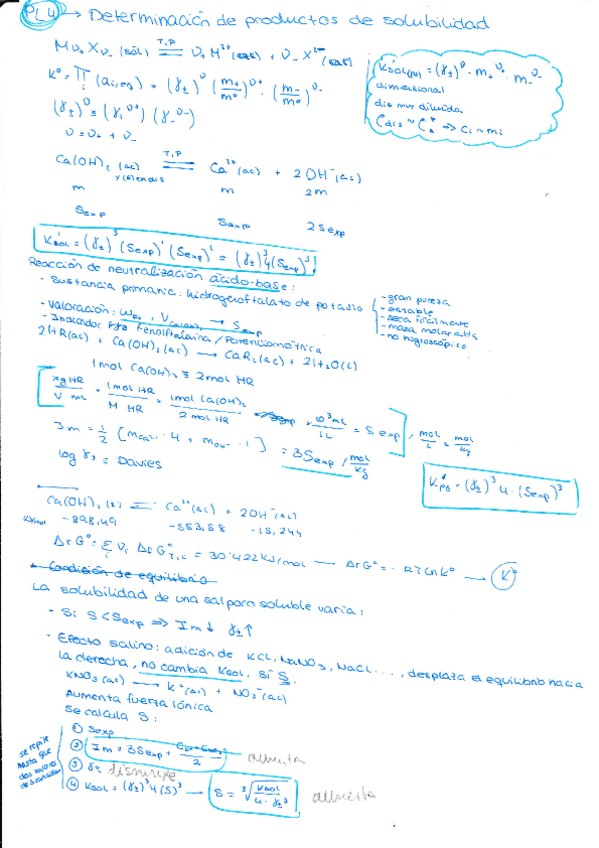 PL 4 → Determinación de productos de solubilidad
Mν+ Xν- (sól) ⇌ ν+ M (ac) + ν- X (ac)
T,P
K° = ∏ (ai,eq) = (γ±)^ν · (m+/m°)^ν+ · (m-/m°)^ν-
(γ±)^ν = (γ+^ν+) (γ-^ν-)
ν = ν+ + ν-
Ksol(m) = (γ±)^ν · m+^ν+ · m-^ν-
dimensional
dis muy diluida
⇒ ci ≈ mi
T,P
Ca(OH)2 (ac) ⇌ Ca²⁺(ac) + 2OH⁻(ac)
m m 2m
Sexp Sexp 2Sexp
Ksol = (γ±)³ (Sexp)¹ (Sexp)² = (γ±)³4(Sexp)³
Reacción de neutralización ácido-base:
- Sustancia primaria: hidrogenoftalato de potasio
- gran pureza
- estable
- seca fácilmente
- masa molar alta
- no higroscópico
- Valoración: → Sexp
- Indicador fenolftaleína / Potenciométrica
2HR(ac) + Ca(OH)2(ac) → CaR2(ac) + 2H2O(l)
1mol Ca(OH)2 ≡ 2mol HR
[xg HR / V mL · 1mol HR / M HR · 1mol Ca(OH)2 / 2 mol HR · 10³mL / 1L = Sexp], mol/L ≈ mol/kg
Im = 1/2 [mCa²⁺ · 4 + mOH⁻ · 1] = 3Sexp, mol/kg
log γ± = Davies
K°ps = (γ±)³ 4 · (Sexp)³
Ca(OH)2(s) ⇌ Ca²⁺(ac) + 2OH⁻(ac)
kJ/mol -898,49 -553,58 -15,244
ΔrG° = Σ νi ΔfG°T,i,c = 30.422 kJ/mol → ΔrG° = -RTlnK° → K°
Condición de equilibrio
La solubilidad de una sal poco soluble varía:
- Si S < Sexp ⇒ Im ↓ γ± ↑
- Efecto salino: adición de KCl, NaNO3, NaCl..., desplaza el equilibrio hacia
la derecha, no cambia Ksol, sí S.
KNO3(ac) → K⁺(ac) + NO3⁻(ac)
Aumenta fuerza iónica
Se calcula S:
se repite
hasta que
dos valores
① Sexp
② Im = 3Sexp + /2 aumenta
③ γ± disminuye
④ Ksol = (γ±)³4(S)³ → S = ∛(Ksol / 4·γ±³) aumenta